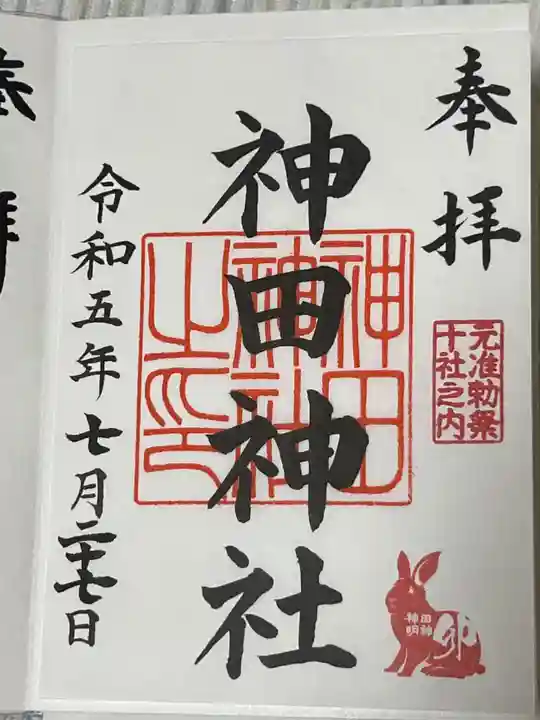 奉拝
元准勅祭
十社之内
神田神社
神田
神社
之印
令和五年七月二十七日
田神
神明
卯
拝